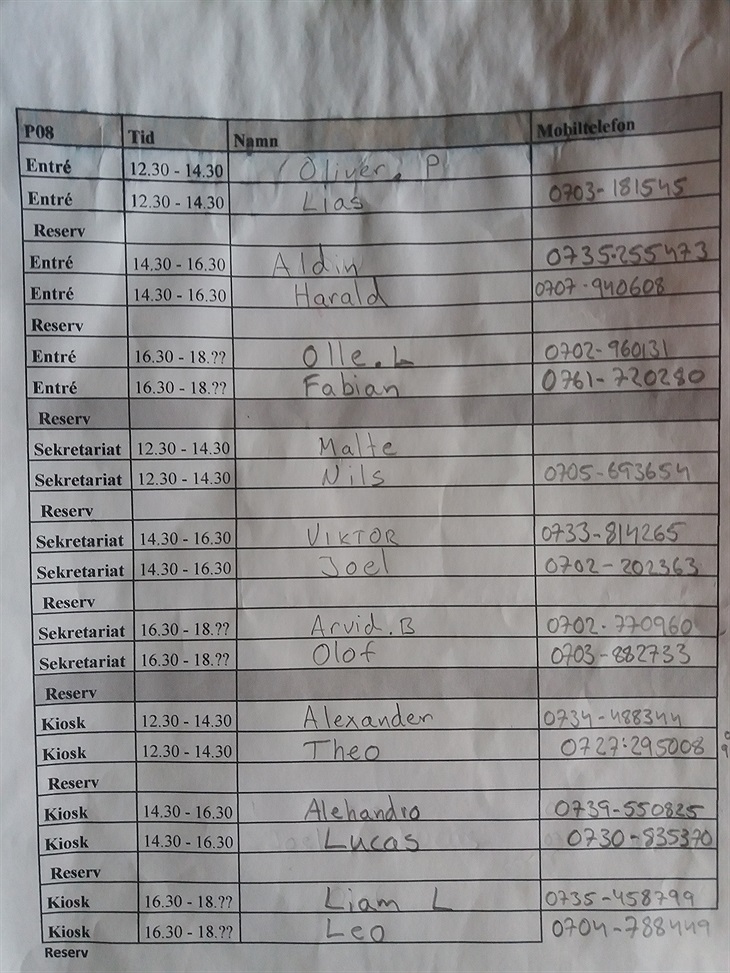 P08 Tid Namn Mobiltelefon
Entré 12.30 - 14.30 Oliver. P
Entré 12.30 - 14.30 Lias 0703-181545
Reserv
Entré 14.30 - 16.30 Aldin 0735-255473
Entré 14.30 - 16.30 Harald 0707-940608
Reserv
Entré 16.30 - 18.?? Olle. L 0702-960131
Entré 16.30 - 18.?? Fabian 0761-720280
Reserv
Sekretariat 12.30 - 14.30 Malte
Sekretariat 12.30 - 14.30 Nils 0705-693654
Reserv
Sekretariat 14.30 - 16.30 VIKTOR 0733-814265
Sekretariat 14.30 - 16.30 Joel 0702-202363
Reserv
Sekretariat 16.30 - 18.?? Arvid. B 0702-770960
Sekretariat 16.30 - 18.?? Olof 0703-882733
Reserv
Kiosk 12.30 - 14.30 Alexander 0734-488344
Kiosk 12.30 - 14.30 Theo 0727-295008
Reserv
Kiosk 14.30 - 16.30 Alehandro 0739-550825
Kiosk 14.30 - 16.30 Lucas 0730-835370
Reserv
Kiosk 16.30 - 18.?? Liam L 0735-458799
Kiosk 16.30 - 18.?? Leo 0704-788449
Reserv